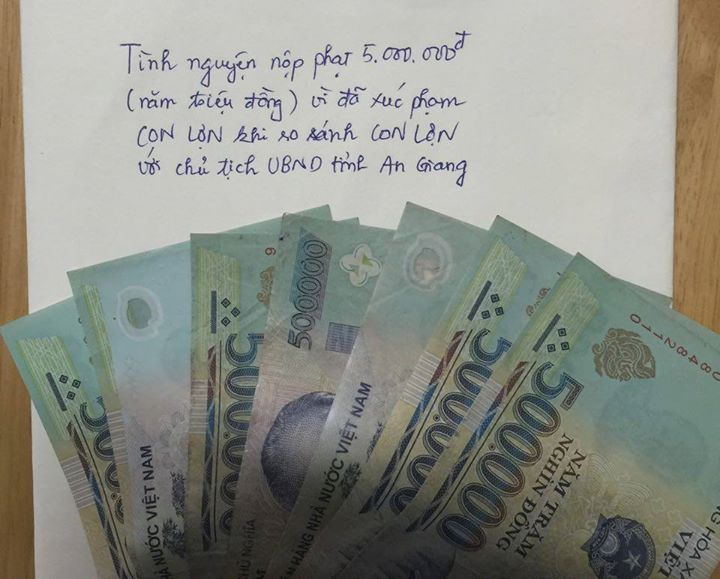 Tình nguyện nộp phạt 5.000.000đ
(năm triệu đồng) vì đã xúc phạm
CON LỢN khi so sánh CON LỢN
với chủ tịch UBND tỉnh An Giang
500.000
NƯỚC VIỆT NAM
500.000
500.000
NGÂN HÀNG NHÀ NƯỚC VIỆT NAM
500.000
500.000
NĂM TRĂM
NGHÌN ĐỒNG
0848211
VIỆT